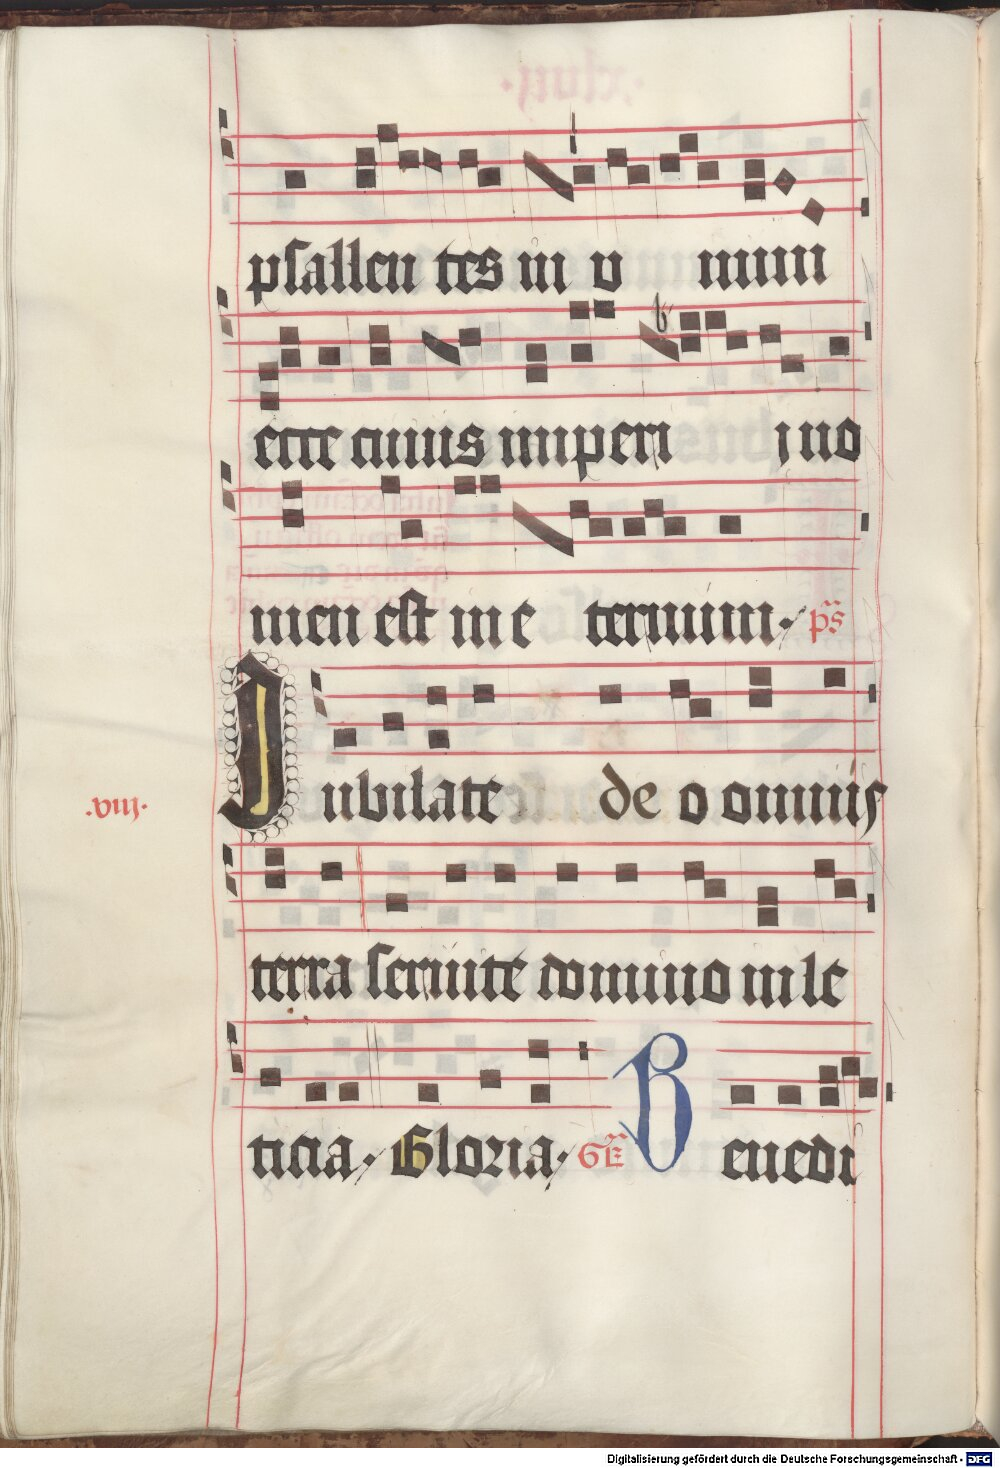 psallen tes in v num
ecce cuius imperi j no
men est in e ternum. ps
Jubilate de o omnis
.viij.
terra seruite domino in le
ticia. Gloria. GE Benedi
Digitalisierung gefördert durch die Deutsche Forschungsgemeinschaft - DFG